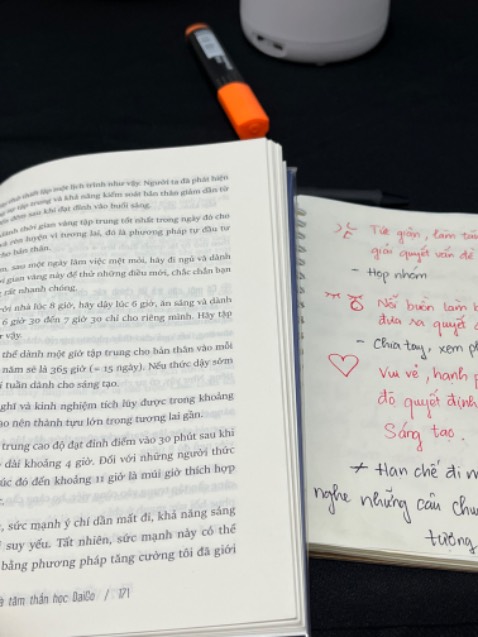 thiết lập một lịch trình như vậy. Người ta đã phát hiện
sự tập trung và khả năng kiểm soát bản thân giảm dần từ
đêm sau khi đạt đỉnh vào buổi sáng.
dành thời gian vàng tập trung tốt nhất trong ngày đó cho
và rèn luyện vì tương lai, đó là phương pháp tự đầu tư
cho bản thân.
sau một ngày làm việc mệt mỏi, hãy đi ngủ và dành
gian vàng này để thử những điều mới, chắc chắn bạn
rất nhanh chóng.
nhà lúc 8 giờ, hãy dậy lúc 6 giờ, ăn sáng và dành
6 giờ 30 đến 7 giờ 30 chỉ cho riêng mình. Hãy tập
vậy.
thể dành một giờ tập trung cho bản thân vào mỗi
năm sẽ là 365 giờ (= 15 ngày). Nếu thức dậy sớm
tuần dành cho sáng tạo.
nghỉ và kinh nghiệm tích lũy được trong khoảng
nên thành tựu lớn trong tương lai gần.
trung cao độ đạt đỉnh điểm vào 30 phút sau khi
dài khoảng 4 giờ. Đối với những người thức
lúc đó đến khoảng 11 giờ là múi giờ thích hợp
, sức mạnh ý chí dần mất đi, khả năng sáng
suy yếu. Tất nhiên, sức mạnh này có thể
bằng phương pháp tăng cường tôi đã giới
tâm thần học DaiGo / 171
Tức giận, làm
giải quyết vấn đề
- Họp nhóm
Nỗi buồn làm
đưa ra quyết
- Chia tay, xem
Vui vẻ, hạnh
đó quyết định
Sáng tạo.
Hạn chế đi
nghe những câu
tương